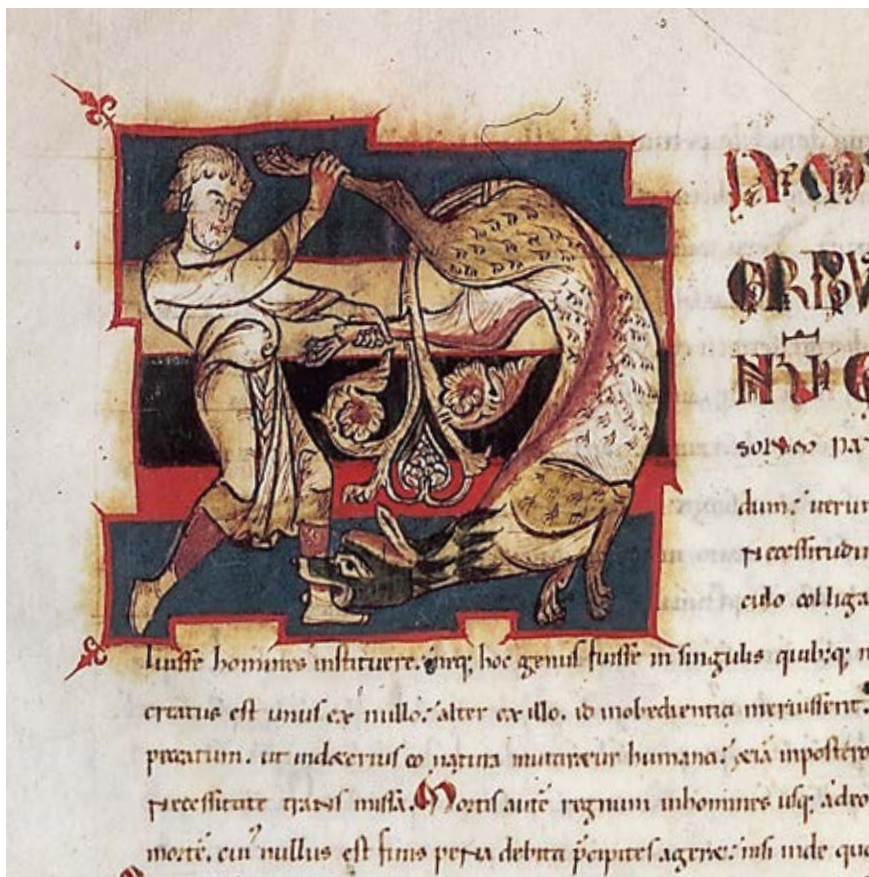 ORIBV
NUG
dum. uerum
Necessitudin
culo colliga
luisse homines instituere. neq; hoc genus fuisse in singulis quib;q; m
creatus est unus ex nullo. alter ex illo. id inobedientia meruissent.
peccatum. ut in deterius eo natura mutaretur humana. etiā inpostero
Necessitate transmissa. Mortis autē regnum inhomines usq; adeo
mortē. cui' nullus est finis pena debita p̄cipites ageret. nisi inde quo